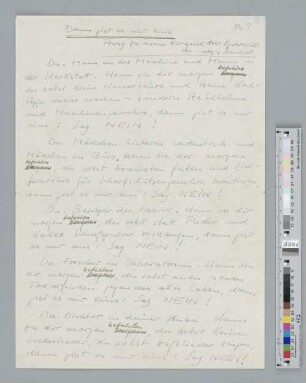 Dann gibt es nur eins
Du. Mann an der Maschine und Mann in
befehlen
der Werkstatt. Wenn sie dir morgen
du sollst keine Wasserrohre und keine Koch-
töpfe mehr machen – sondern Stahlhelme
und Maschinengewehre, dann gibt es nur
eins: Sag NEIN!
Du. Mädchen hinterm Ladentisch und
Mädchen im Büro. Wenn sie dir morgen
befehlen
du sollst Granaten füllen und Ziel-
fernrohre für Scharfschützengewehre montieren,
dann gibt es nur eins: Sag NEIN!
Du. Besitzer der Fabrik. Wenn sie dir
befehlen
morgen du sollst statt Puder und
Kakao Schießpulver verkaufen, dann gibt
es nur eins: Sag NEIN!
Du. Forscher im Laboratorium. Wenn sie
befehlen
dir morgen du sollst einen neuen
Tod erfinden gegen das alte Leben, dann
gibt es nur eins: Sag NEIN!
Du. Dichter in deiner Stube. Wenn
befehlen
sie dir morgen du sollst keine
Liebeslieder, du sollst Haßlieder singen,
dann gibt es nur eins: Sag NEIN!